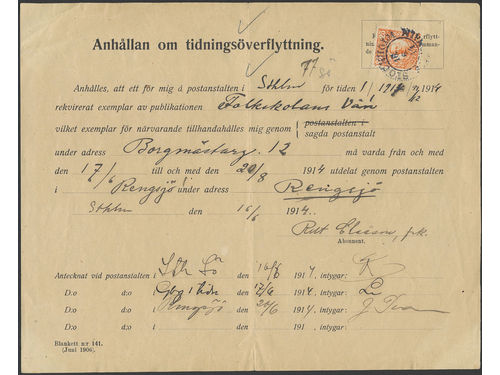 Anhållan om tidningsöverflyttning.
Anhålles, att ett för mig å postanstalten i Sthlm för tiden 1/1 1914 - /12 1914
rekvirerat exemplar av publikationen Folkskolans Vän
vilket exemplar för närvarande tillhandahålles mig genom postanstalten i
sagda postanstalt
under adress Borgmästarg. 12 må varda från och med
den 17/6 till och med den 20/8 1914 utdelat genom postanstalten
i Rengsjö under adress Rengsjö
Sthlm den 16/6 1914.
Abonnent.
Antecknat vid postanstalten i den 16/6 1914, intygar:
D:o d:o i den 17/6 1914, intygar:
D:o d:o i Rengsjö den 20/6 1914, intygar:
D:o d:o i den 191 , intygar:
Blankett n:r 141.
(Juni 1906).